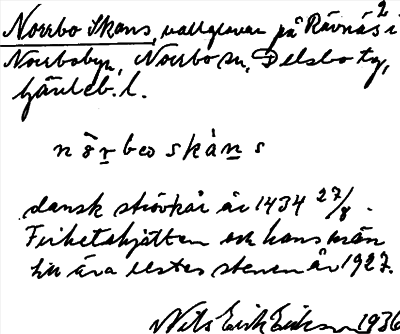 Norrbo Skans, vallgravar på Rävnäs i 2
Norrbobyn, Norrbo sn, Delsbo tg,
Gävleb. l.
nŏrbeo skans
dansk strövkår år 1434 27/8.
Frihetshjälten och hans män
till ära restes stenen år 1927.
Nils Erik Eriksson 1936